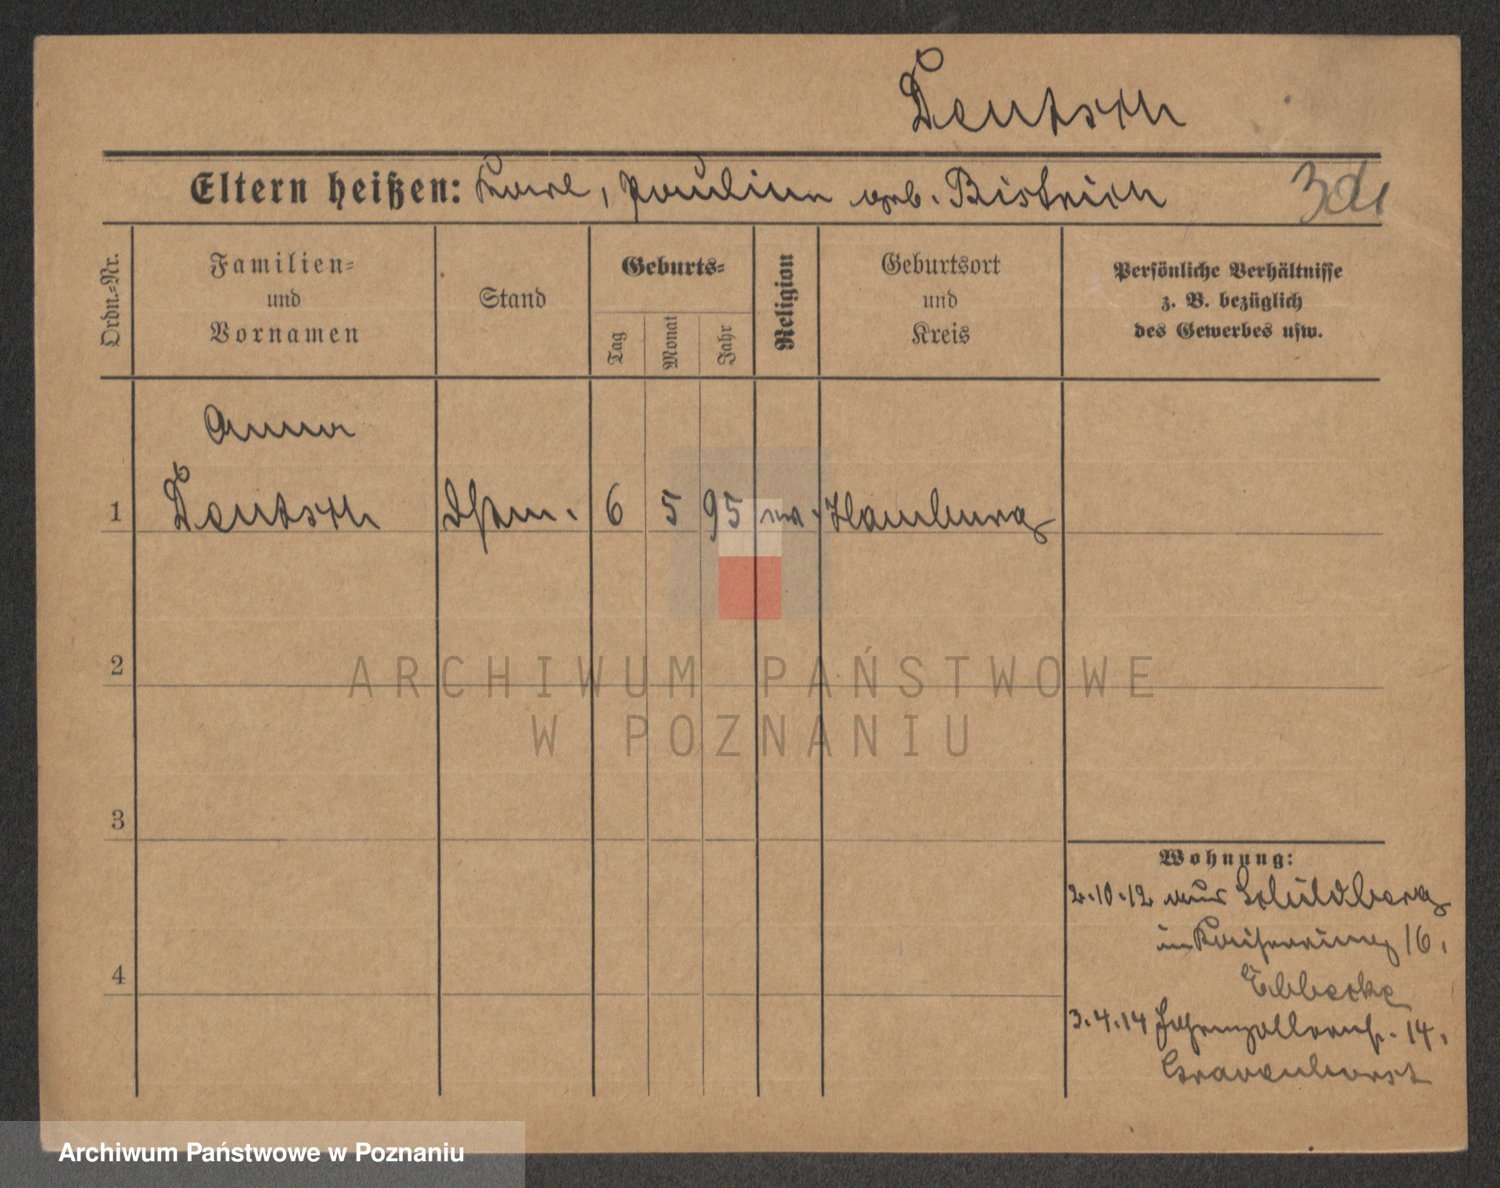 Deutsch
Eltern heißen: Karl, Pauline geb. Bistrich
Ordn.-Nr.
Familien-
und
Vornamen
Stand
Geburts-
Tag
Monat
Jahr
Religion
Geburtsort
und
Kreis
Persönliche Verhältnisse
z. B. bezüglich
des Gewerbes usw.
Anna
1 Deutsch 6 5 95 Hamburg
2
3
4
Wohnung:
2.10.12 aus Schildberg
in Kaiserring 16.
Ebbecke
3.4.14 Hohenzollernstr. 14.
Gravenhorst
ARCHIWUM PAŃSTWOWE
W POZNANIU
Archiwum Państwowe w Poznaniu